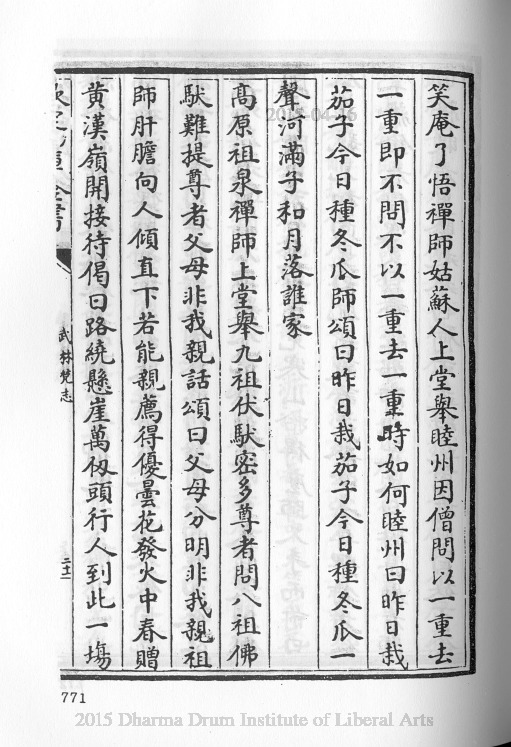 笑庵了悟禪師姑蘇人上堂舉睦州因僧問以一重去
一重即不問不以一重去一重時如何睦州曰昨日栽
茄子今日種冬瓜師頌曰昨日栽茄子今日種冬瓜一
聲河滿子和月落誰家
高原祖泉禪師上堂舉九祖伏馱密多尊者問八祖佛
馱難提尊者父母非我親話頌曰父母分明非我親祖
師肝膽向人傾直下若能親薦得優曇花發火中春贈
黄漢嶺開接待偈曰路繞懸崖萬仭頭行人到此一塲
欽定四庫全書
武林梵志
771
2015 Dharma Drum Institute of Liberal Arts